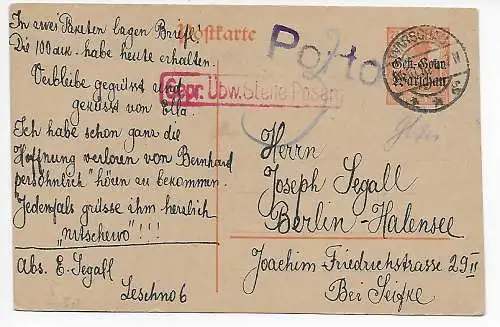 In zwei Paketen lagen Briefe!
Die 100 M. habe heute erhalten.
Verbleibe gegrüsst und
geküsst von Ella.
Ich habe schon ganz die
Hoffnung verloren von Bernhard
"persöhnlich" hören zu bekommen.
Jedenfals grüsse ihm herzlich
"nitschewo"!!!
Abs. E. Segall
Leschno 6
Postkarte
Porto
Gepr. Übw. Stelle Posen
WARSCHAU
Gen.-Gouv.
Warschau
Herrn
Joseph Segall
Berlin-Halensee
Joachim-Friedrichstrasse 29 II
Bei Seifke